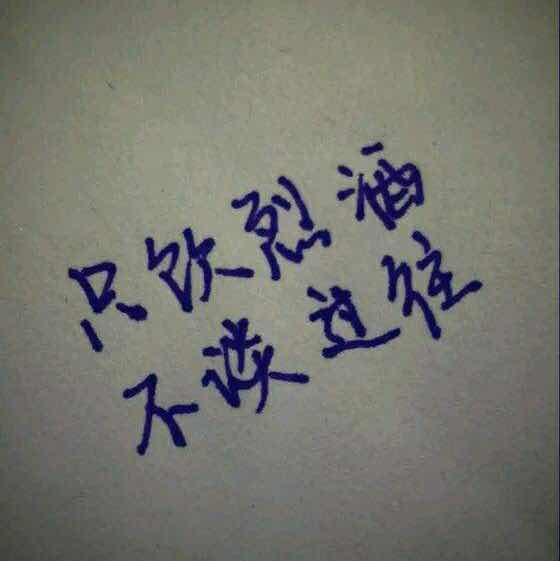 只饮烈酒
不谈过往